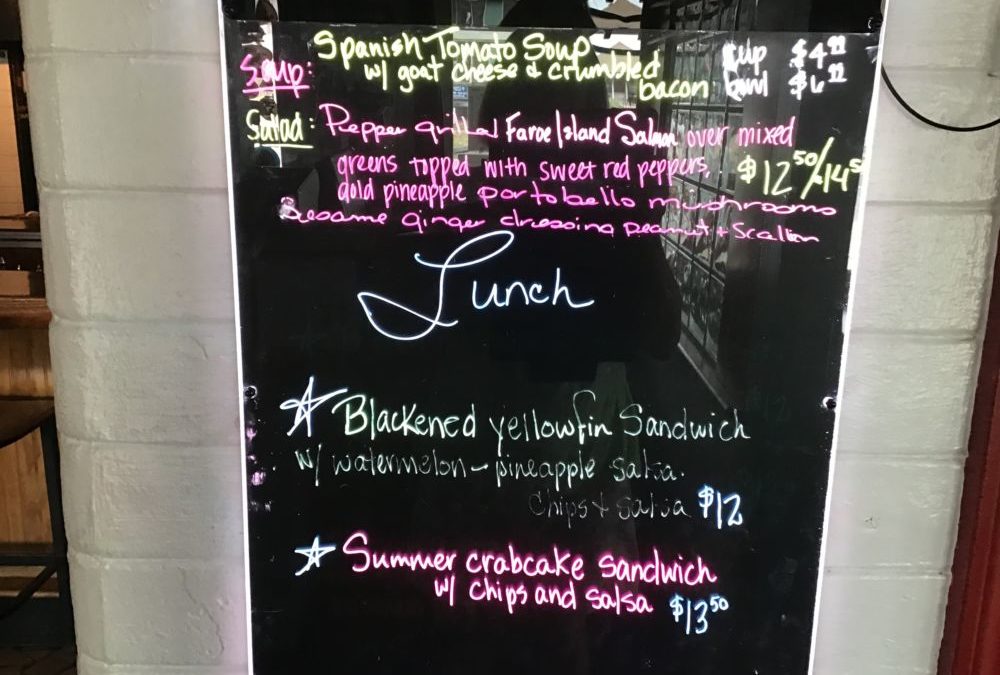 Spanish Tomato Soup
Soup: w/ goat cheese & crumbled cup $4.99
bacon: bowl $6
Salad: Pepper grilled Faroe Island Salmon over mixed
greens topped with sweet red peppers, $12.50/14.5
gold pineapple portobello mushrooms
Sesame ginger dressing peanut + Scallion
Lunch
Blackened yellowfin Sandwich
w/ watermelon-pineapple salsa.
chips + salsa $12
Summer crabcake sandwich
w/ chips and salsa $13.50